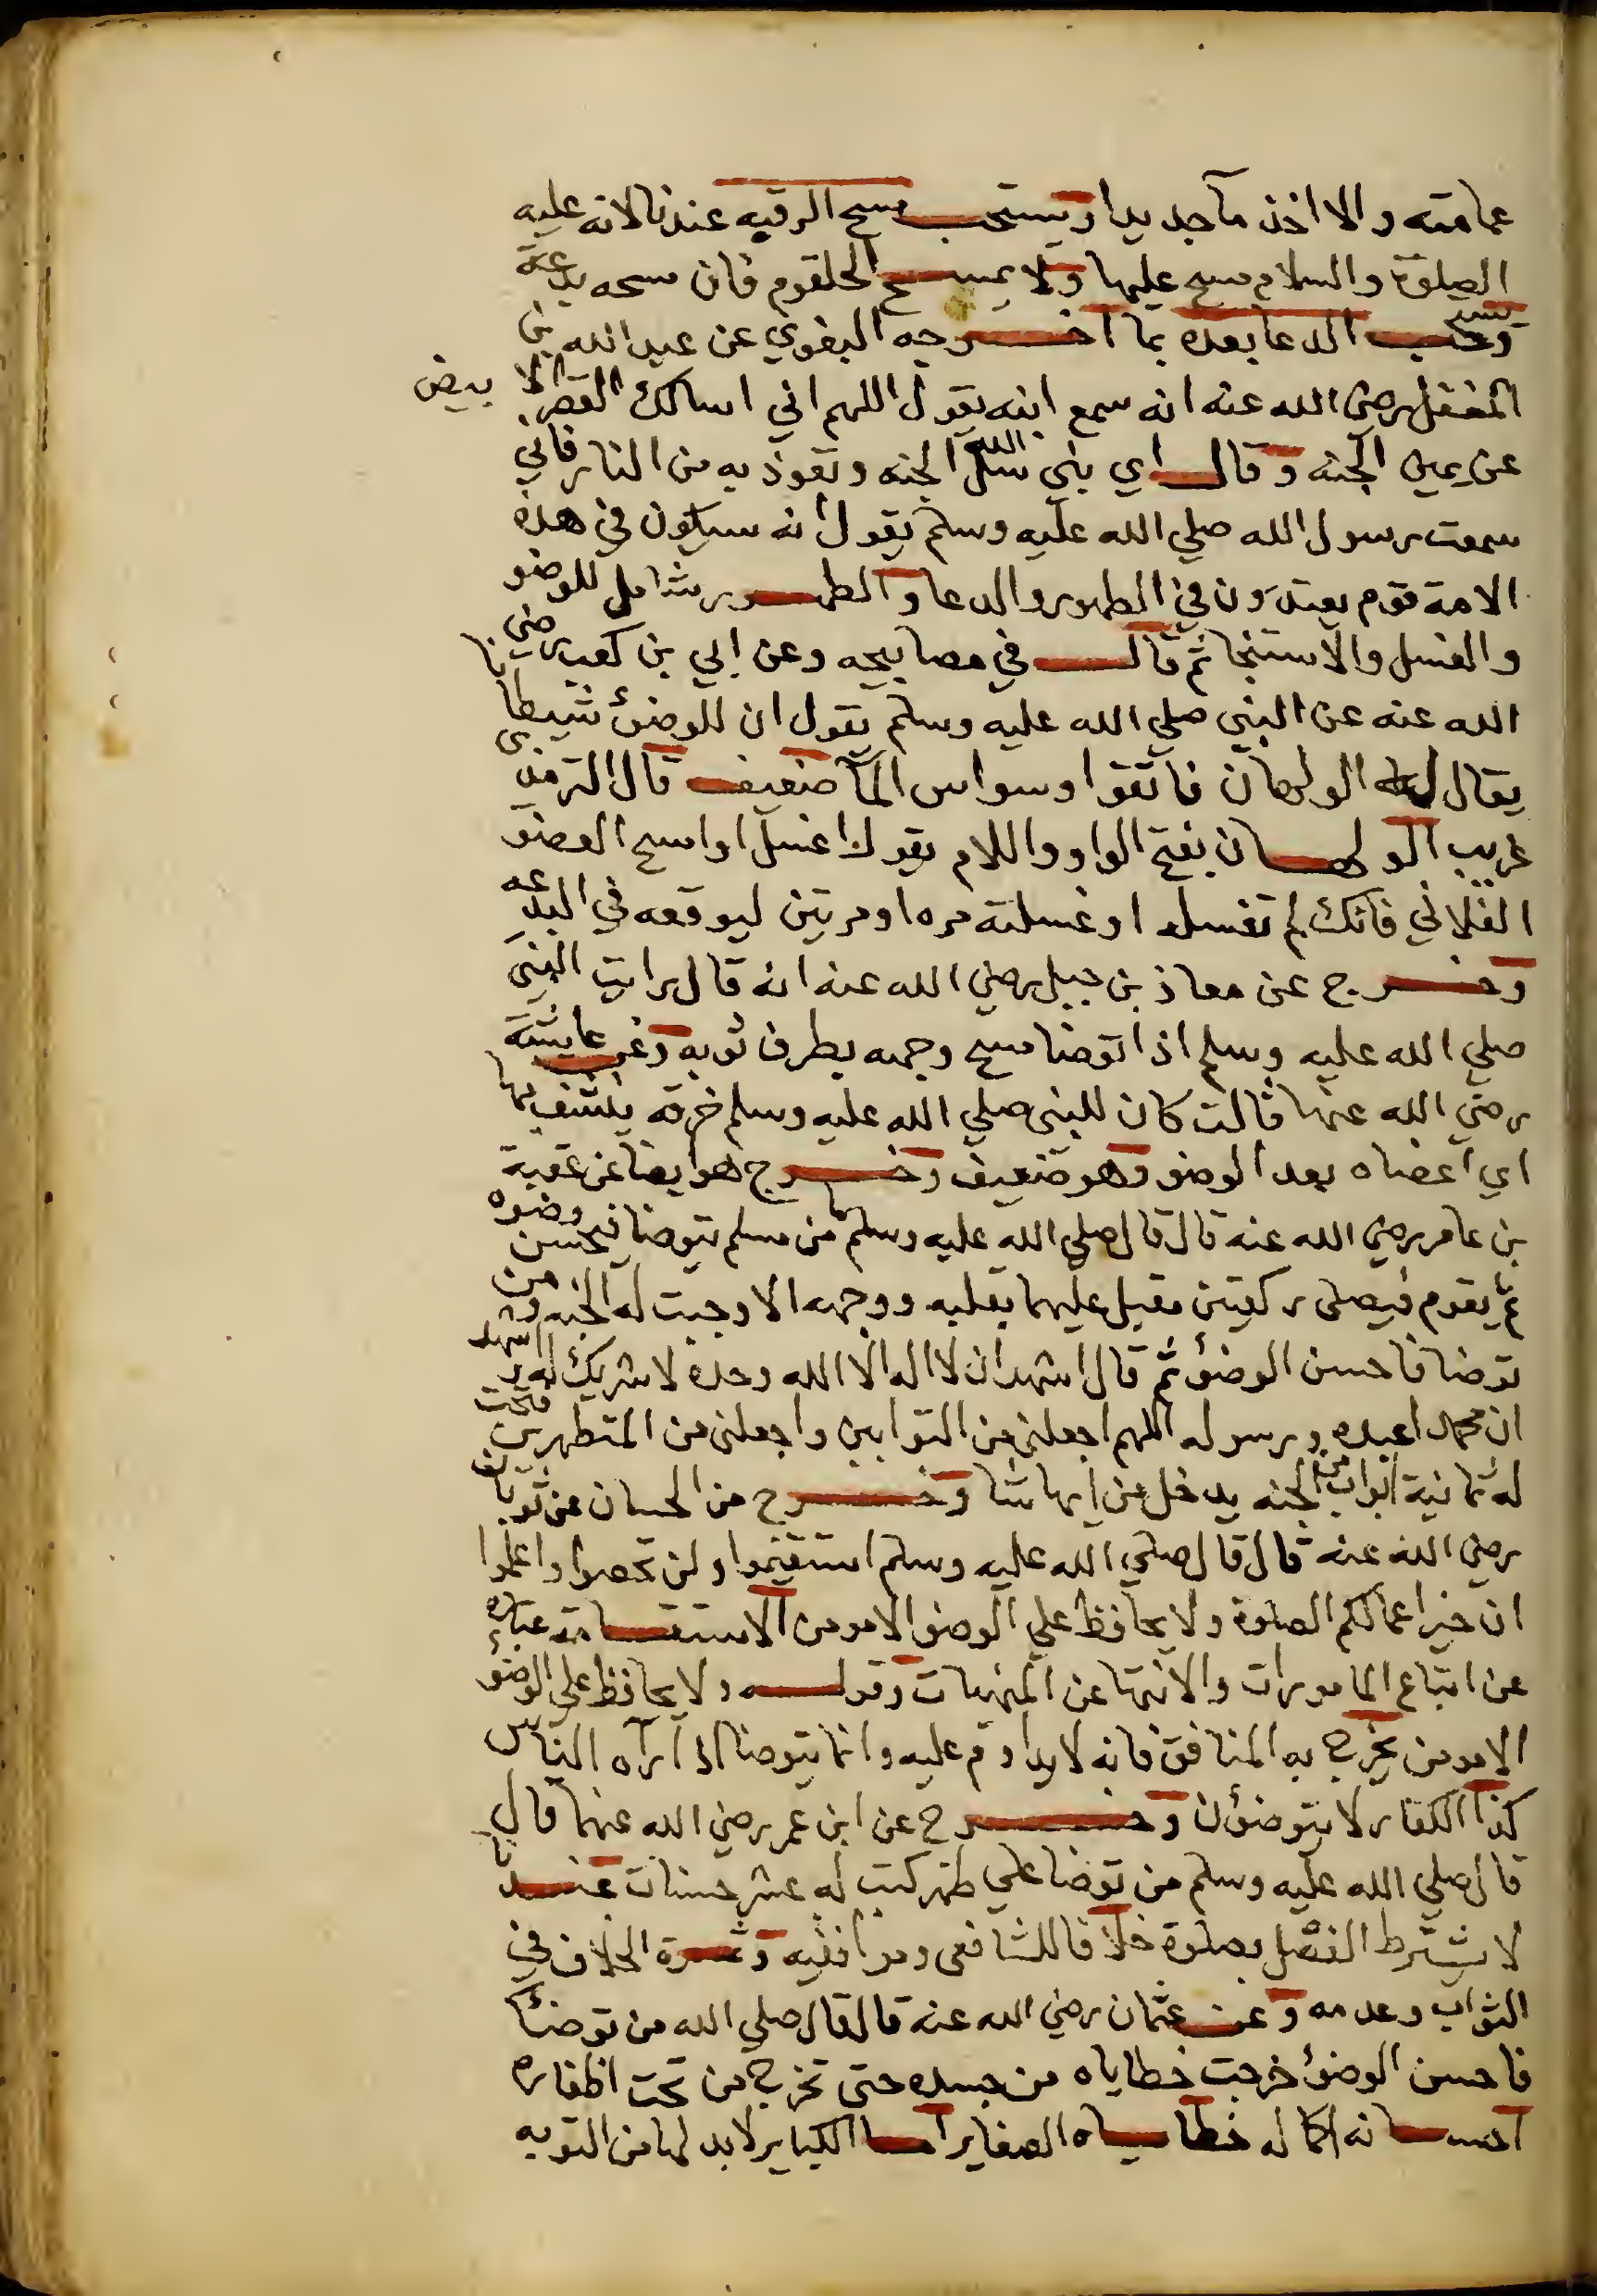 عمامته والا اخذ مآ جديدا ويستحب مسح الرقبه عندنا لانه عليه
الصلوة والسلام مسح عليها ولا يمسح الحلقوم فان مسحه بدعة
ويستحب الدعا بعده بما اخرجه البغوي عن عبد الله بن
المغفل رضي الله عنه انه سمع ابنه يقول اللهم اني اسالك القصر الابيض
عن يمين الجنه وقال اي بني سل الله الجنه وتعوذ به من النار فاني
سمعت رسول الله صلي الله عليه وسلم يقول انه سيكون في هذه
الامة قوم يعتدون في الطهور والدعا والطهور شامل للوضو
والغسل والاستنجا ثم قال في مصابيحه وعن ابي بن كعب رضي
الله عنه عن النبي صلي الله عليه وسلم يقول ان للوضوء شيطانا
يقال له الولهان فاتقوا وسواس المآ ضعيف قال الترمذي
غريب الولهان بفتح الواو واللام يقول اغسل او امسح العضو
الفلاني فانك لم تغسله او غسلته مره او مرتين ليوقعه في البدعه
وخرج عن معاذ بن جبل رضي الله عنه انه قال رايت النبي
صلي الله عليه وسلم اذا توضا مسح وجهه بطرف ثوبه وعن عايشة
رضي الله عنها قالت كان للنبي صلي الله عليه وسلم خرقه ينشف بها
اي اعضاه بعد الوضو وهو ضعيف وخرج هو ايضا عن عقبة
بن عامر رضي الله عنه قال قال صلي الله عليه وسلم ما من مسلم يتوضا فيحسن وضوه
ثم يقوم فيصلي ركعتين مقبل عليهما بقلبه ووجهه الا وجبت له الجنه ومن
توضا فاحسن الوضوء ثم قال اشهد ان لا اله الا الله وحده لا شريك له واشهد
ان محمدا عبده ورسوله اللهم اجعلني من التوابين واجعلني من المتطهرين فتحت
له ثمانية ابواب من الجنه يدخل من ايها شا وخرج من الحسان عن ثوبان
رضي الله عنه قال قال صلي الله عليه وسلم استقيموا ولن تحصوا واعلموا
ان خير اعمالكم الصلوة ولا يحافظ علي الوضو الا مومن الاستقامة عبارة
عن اتباع المامورات والانتها عن المنهيات وقوله ولا يحافظ علي الوضوء
الا مومن يخرج به المنافق فانه لا يداوم عليه وانما يتوضا اذا رآه الناس
كذا الكفار لا يتوضؤن وخرج عن ابن عمر رضي الله عنهما قال
قال صلي الله عليه وسلم من توضا علي طهر كتب له عشر حسنات عندنا
لا يشترط الفصل بصلوة خلافا للشافعي وموافقيه وثمرة الخلاف في
الثواب وعدمه وعن عثمان رضي الله عنه قال قال صلي الله من توضئا
فاحسن الوضوء خرجت خطاياه من جسده حتي تخرج من تحت اظفاره
احسانه اكماله خطاياه الصغاير اما الكباير لابد لها من التوبه